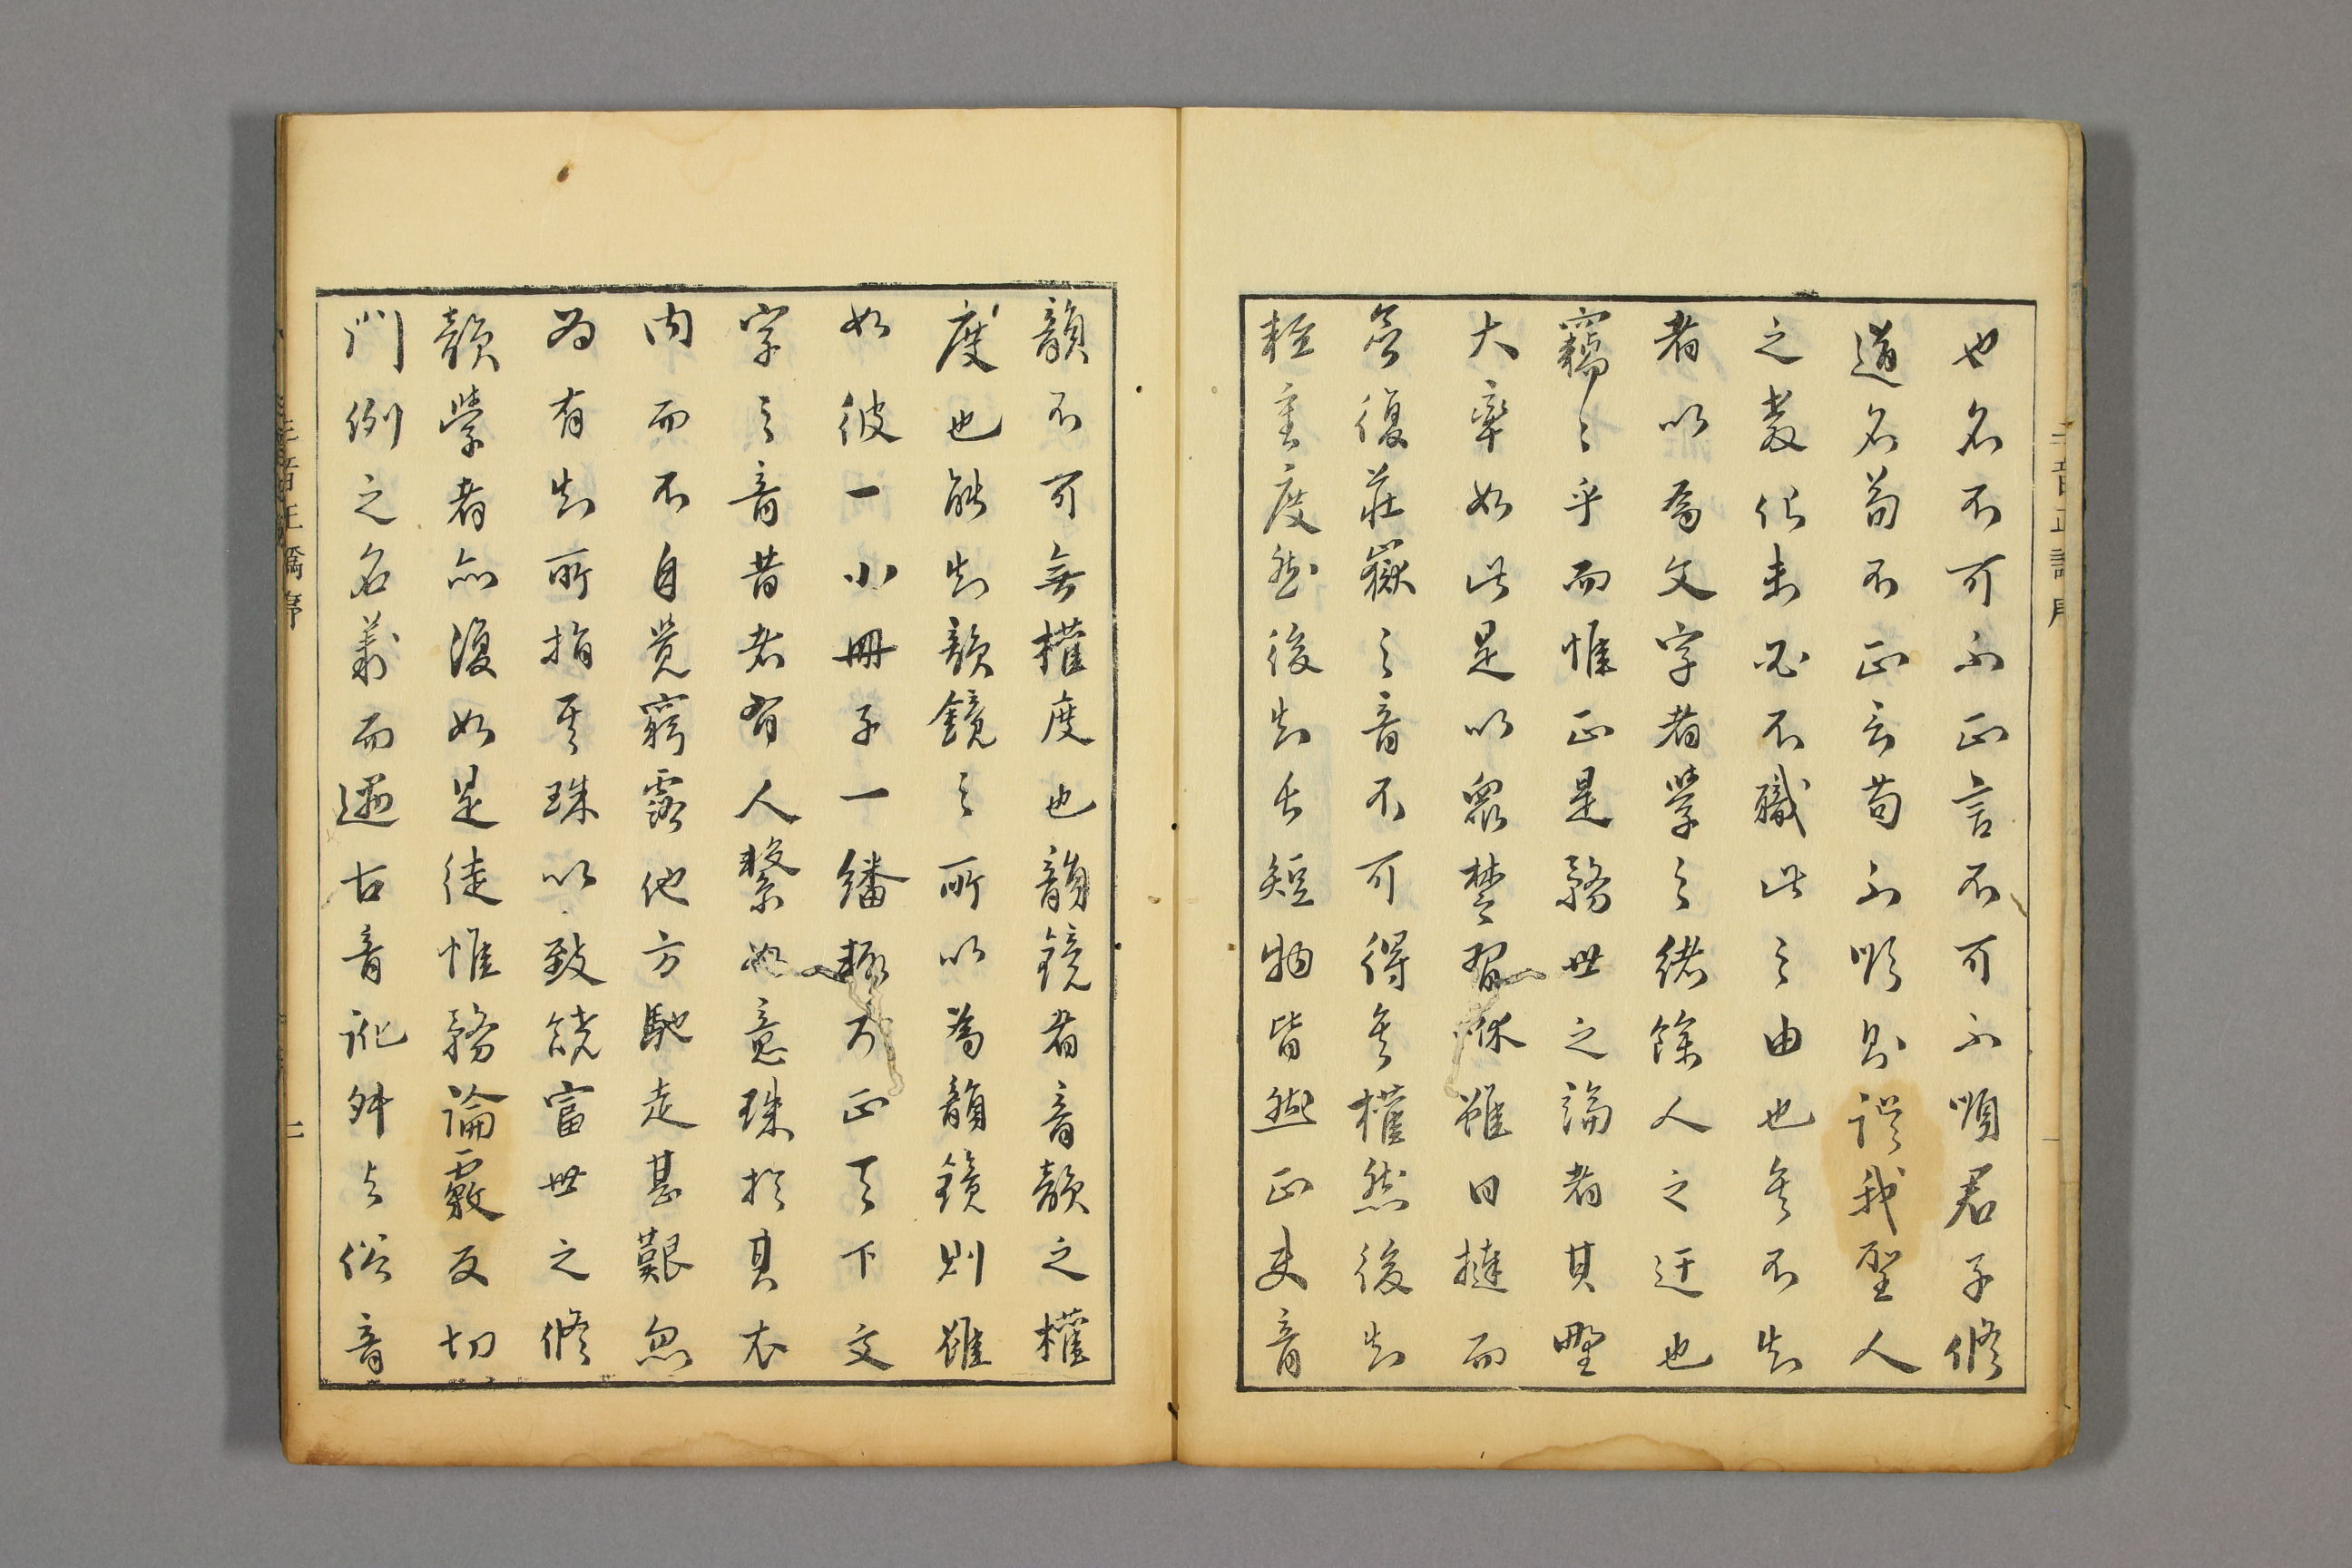 也名不可不正言不可不順君子脩
道名苟不正言苟不順則誤我聖人
之教化未必不職此之由也矣不知
者以為文字者學之緒餘人之迂也
竊之乎而惟正是務世之論者其野
大率如此是以衆楚咻雖日撻而
復莊嶽之音不可得矣權然後知
輕重度然後知長短物皆然正夫音
韻不可無權度也韻鏡者音韻之權
度也能知韻鏡之所以為韻鏡則雖
如彼一小冊子一繙輒正天下文
字之音昔者有人繫如意珠於其衣
内而不自覺窮露他方馳走甚艱忽
為有知所指示珠以致饒富世之脩
韻學者亦復如是徒惟務論覈反切
門例之名義而遝古音訛舛与俗音
三音正譌序
二
三音正譌序
一